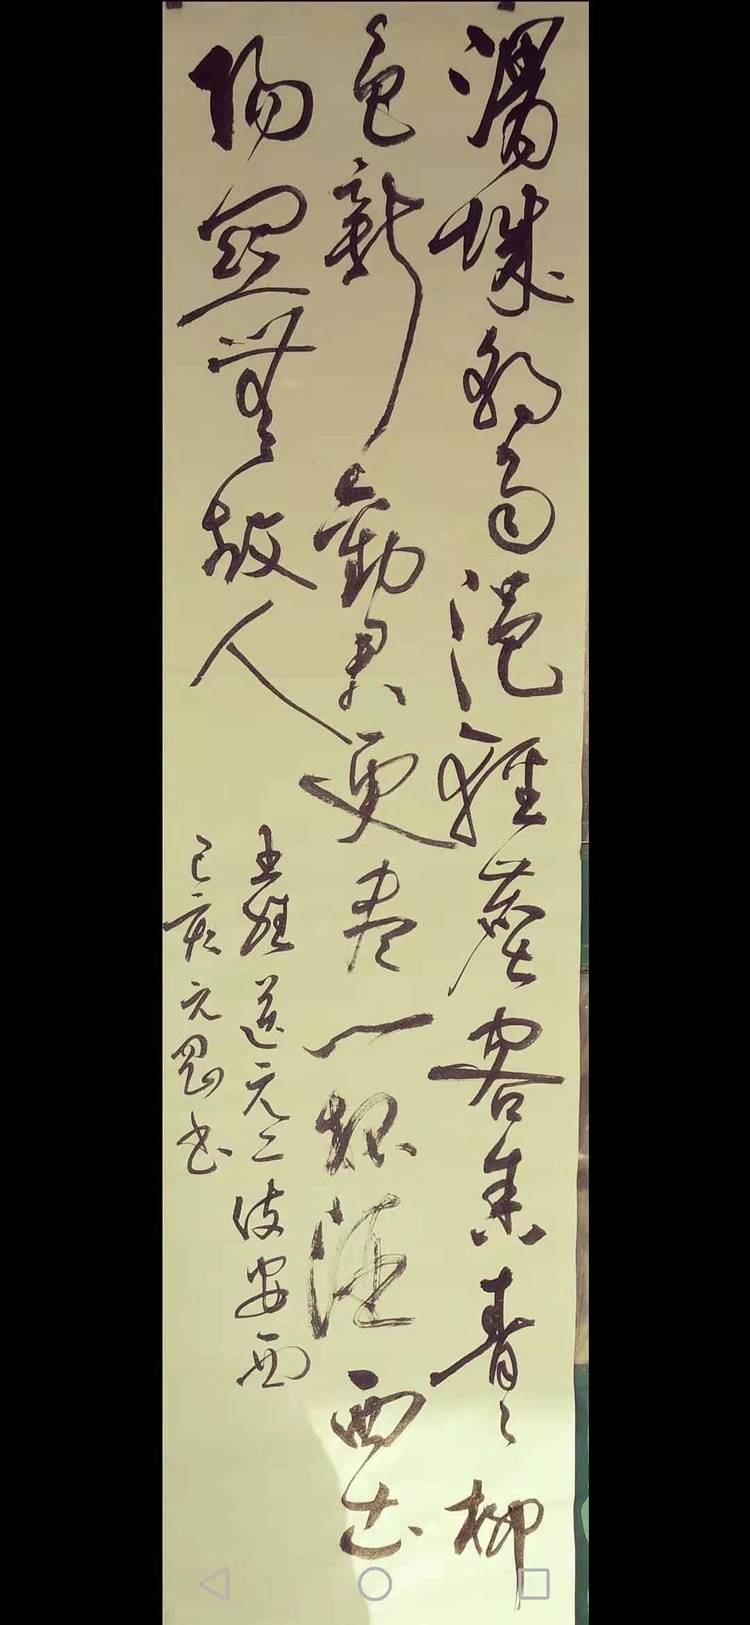 渭城朝雨浥轻尘客舍青々柳
色新劝君更尽一杯酒西出
阳关无故人
王维送元二使安西
己亥元
书